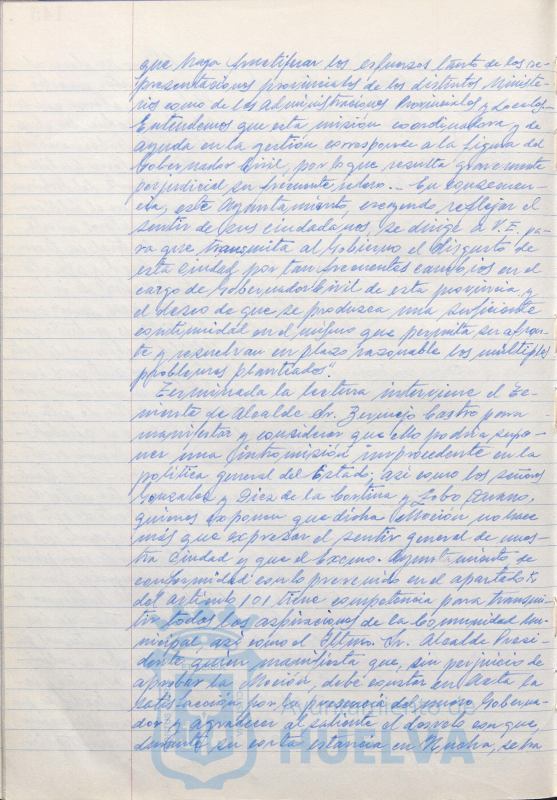 que haga fructificar los esfuerzos tanto de las re-
presentaciones provinciales de los distintos Ministe-
rios como de las Administraciones Provinciales y Locales.
Entendemos que esta misión coordinadora y de
ayuda en la gestión corresponde a la figura del
Gobernador Civil, por lo que resulta gravemente
perjudicial su frecuente relevo.- En consecuen-
cia, este Ayuntamiento, creyendo reflejar el
sentir de sus ciudadanos, se dirige a V.E. pa-
ra que transmita al Gobierno el disgusto de
esta Ciudad por tan frecuentes cambios en el
cargo de Gobernador Civil de esta provincia y
el deseo de que se produzca una suficiente
continuidad en el mismo que permita se afron-
te y resuelvan en plazo razonable los múltiples
problemas planteados".
Terminada la lectura interviene el Te-
niente de Alcalde Sr. Bermejo Castro para
manifestar y considerar que ello podría supo-
ner una intromisión improcedente en la
política general del Estado; así como los señores
González y Díez de la Cortina y Lobo
quienes exponen que dicha Moción no hace
más que expresar el sentir general de nues-
tra Ciudad y que el Excmo. Ayuntamiento, de
conformidad con lo prevenido en el apartado
del artículo 101 tiene competencia para transmi-
tir todas las aspiraciones de la Comunidad Mu-
nicipal, así como el Iltmo. Sr. Alcalde Presi-
dente quien manifiesta que, sin perjuicio de
aprobar la Moción, debe constar en Acta la
satisfacción por la presencia del nuevo Goberna-
dor y agradecer al saliente el desvelo con que,
durante su corta estancia en Huelva, se ha
HUELVA